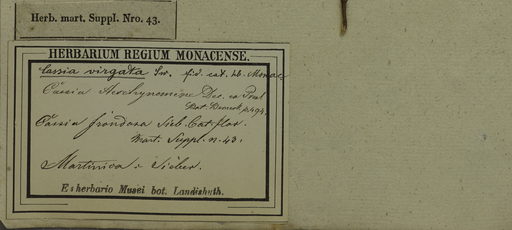 Herb. mart. Suppl. Nro. 43.
HERBARIUM REGIUM MONACENSE.
Cassia virgata Sw. fid. cat. hb. Monac
Cassia Aeschynomene Dec. ex Presl
Bot. p. 494.
Cassia frondosa Sieb. Cat. flor.
Mart. Suppl. n. 43.
Martinica: Sieber.
Ex herbario Musei bot. Landishuth.